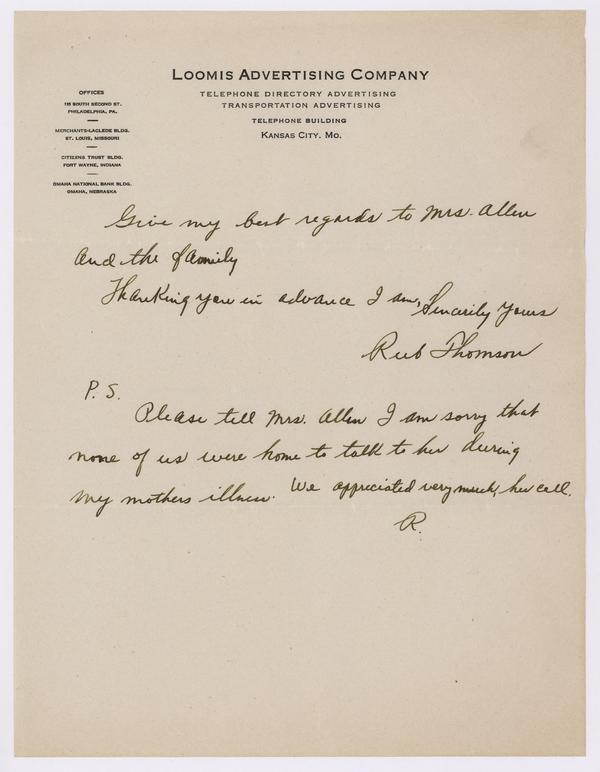 LOOMIS ADVERTISING COMPANY
TELEPHONE DIRECTORY ADVERTISING
TRANSPORTATION ADVERTISING
TELEPHONE BUILDING
KANSAS CITY, MO.
OFFICES
115 SOUTH SECOND ST.
PHILADELPHIA, PA.
MERCHANTS-LACLEDE BLDG.
ST. LOUIS, MISSOURI
CITIZENS TRUST BLDG.
FORT WAYNE, INDIANA
OMAHA NATIONAL BANK BLDG.
OMAHA, NEBRASKA
Give my best regards to Mrs. Allen
and the family
Thanking you in advance I am, Sincerily yours
Rub Thomson
P.S.
Please tell Mrs. Allen I am sorry that
none of us were home to talk to her during
my mothers illness. We appreciated very much, her call.
R.